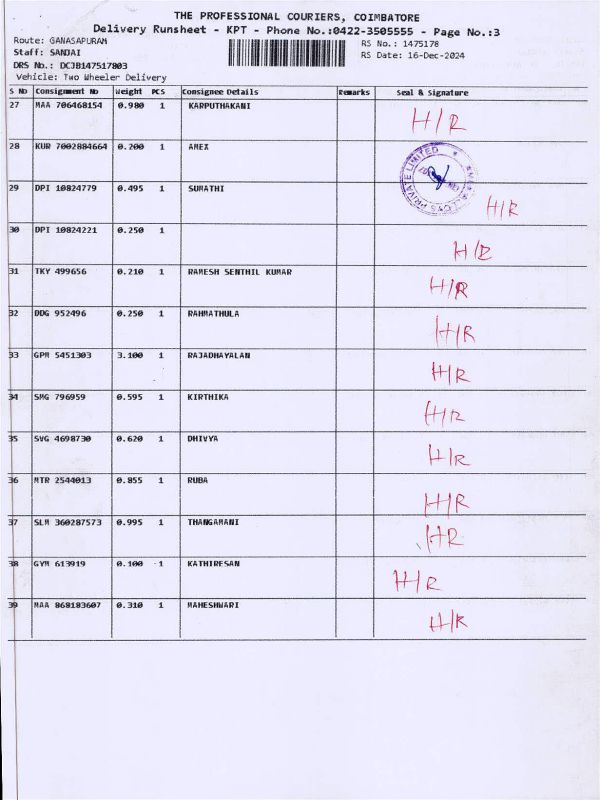 THE PROFESSIONAL COURIERS, COIMBATORE
Delivery Runsheet - KPT - Phone No.:0422-3505555 - Page No.:3
Route: GANASAPURAM
RS No.: 1475178
Staff: SANJAI
RS Date: 16-Dec-2024
DRS No.: DCJB147517803
Vehicle: Two Wheeler Delivery
S No Consignment No Weight PCS Consignee Details Remarks Seal & Signature
27 MAA 706468154 0.980 1 KARPUTHAKANI H/R
28 KUR 7002884664 0.200 1 AMEX
PRIVATE LIMITED
29 DPI 10824779 0.495 1 SUMATHI H/R
30 DPI 10824221 0.250 1 H/R
31 TKY 499656 0.210 1 RAMESH SENTHIL KUMAR H/R
32 DDG 952496 0.250 1 RAHMATHULA H/R
33 GPM 5451303 3.100 1 RAJADHAYALAN H/R
34 SMG 796959 0.595 1 KIRTHIKA H/R
35 SVG 4698730 0.620 1 DHIVYA H/R
36 MTR 2544013 0.855 1 RUBA H/R
37 SLM 360287573 0.995 1 THANGAMANI H/R
38 GYM 613919 0.100 1 KATHIRESAN H/R
39 MAA 868183607 0.310 1 MAHESHWARI H/R